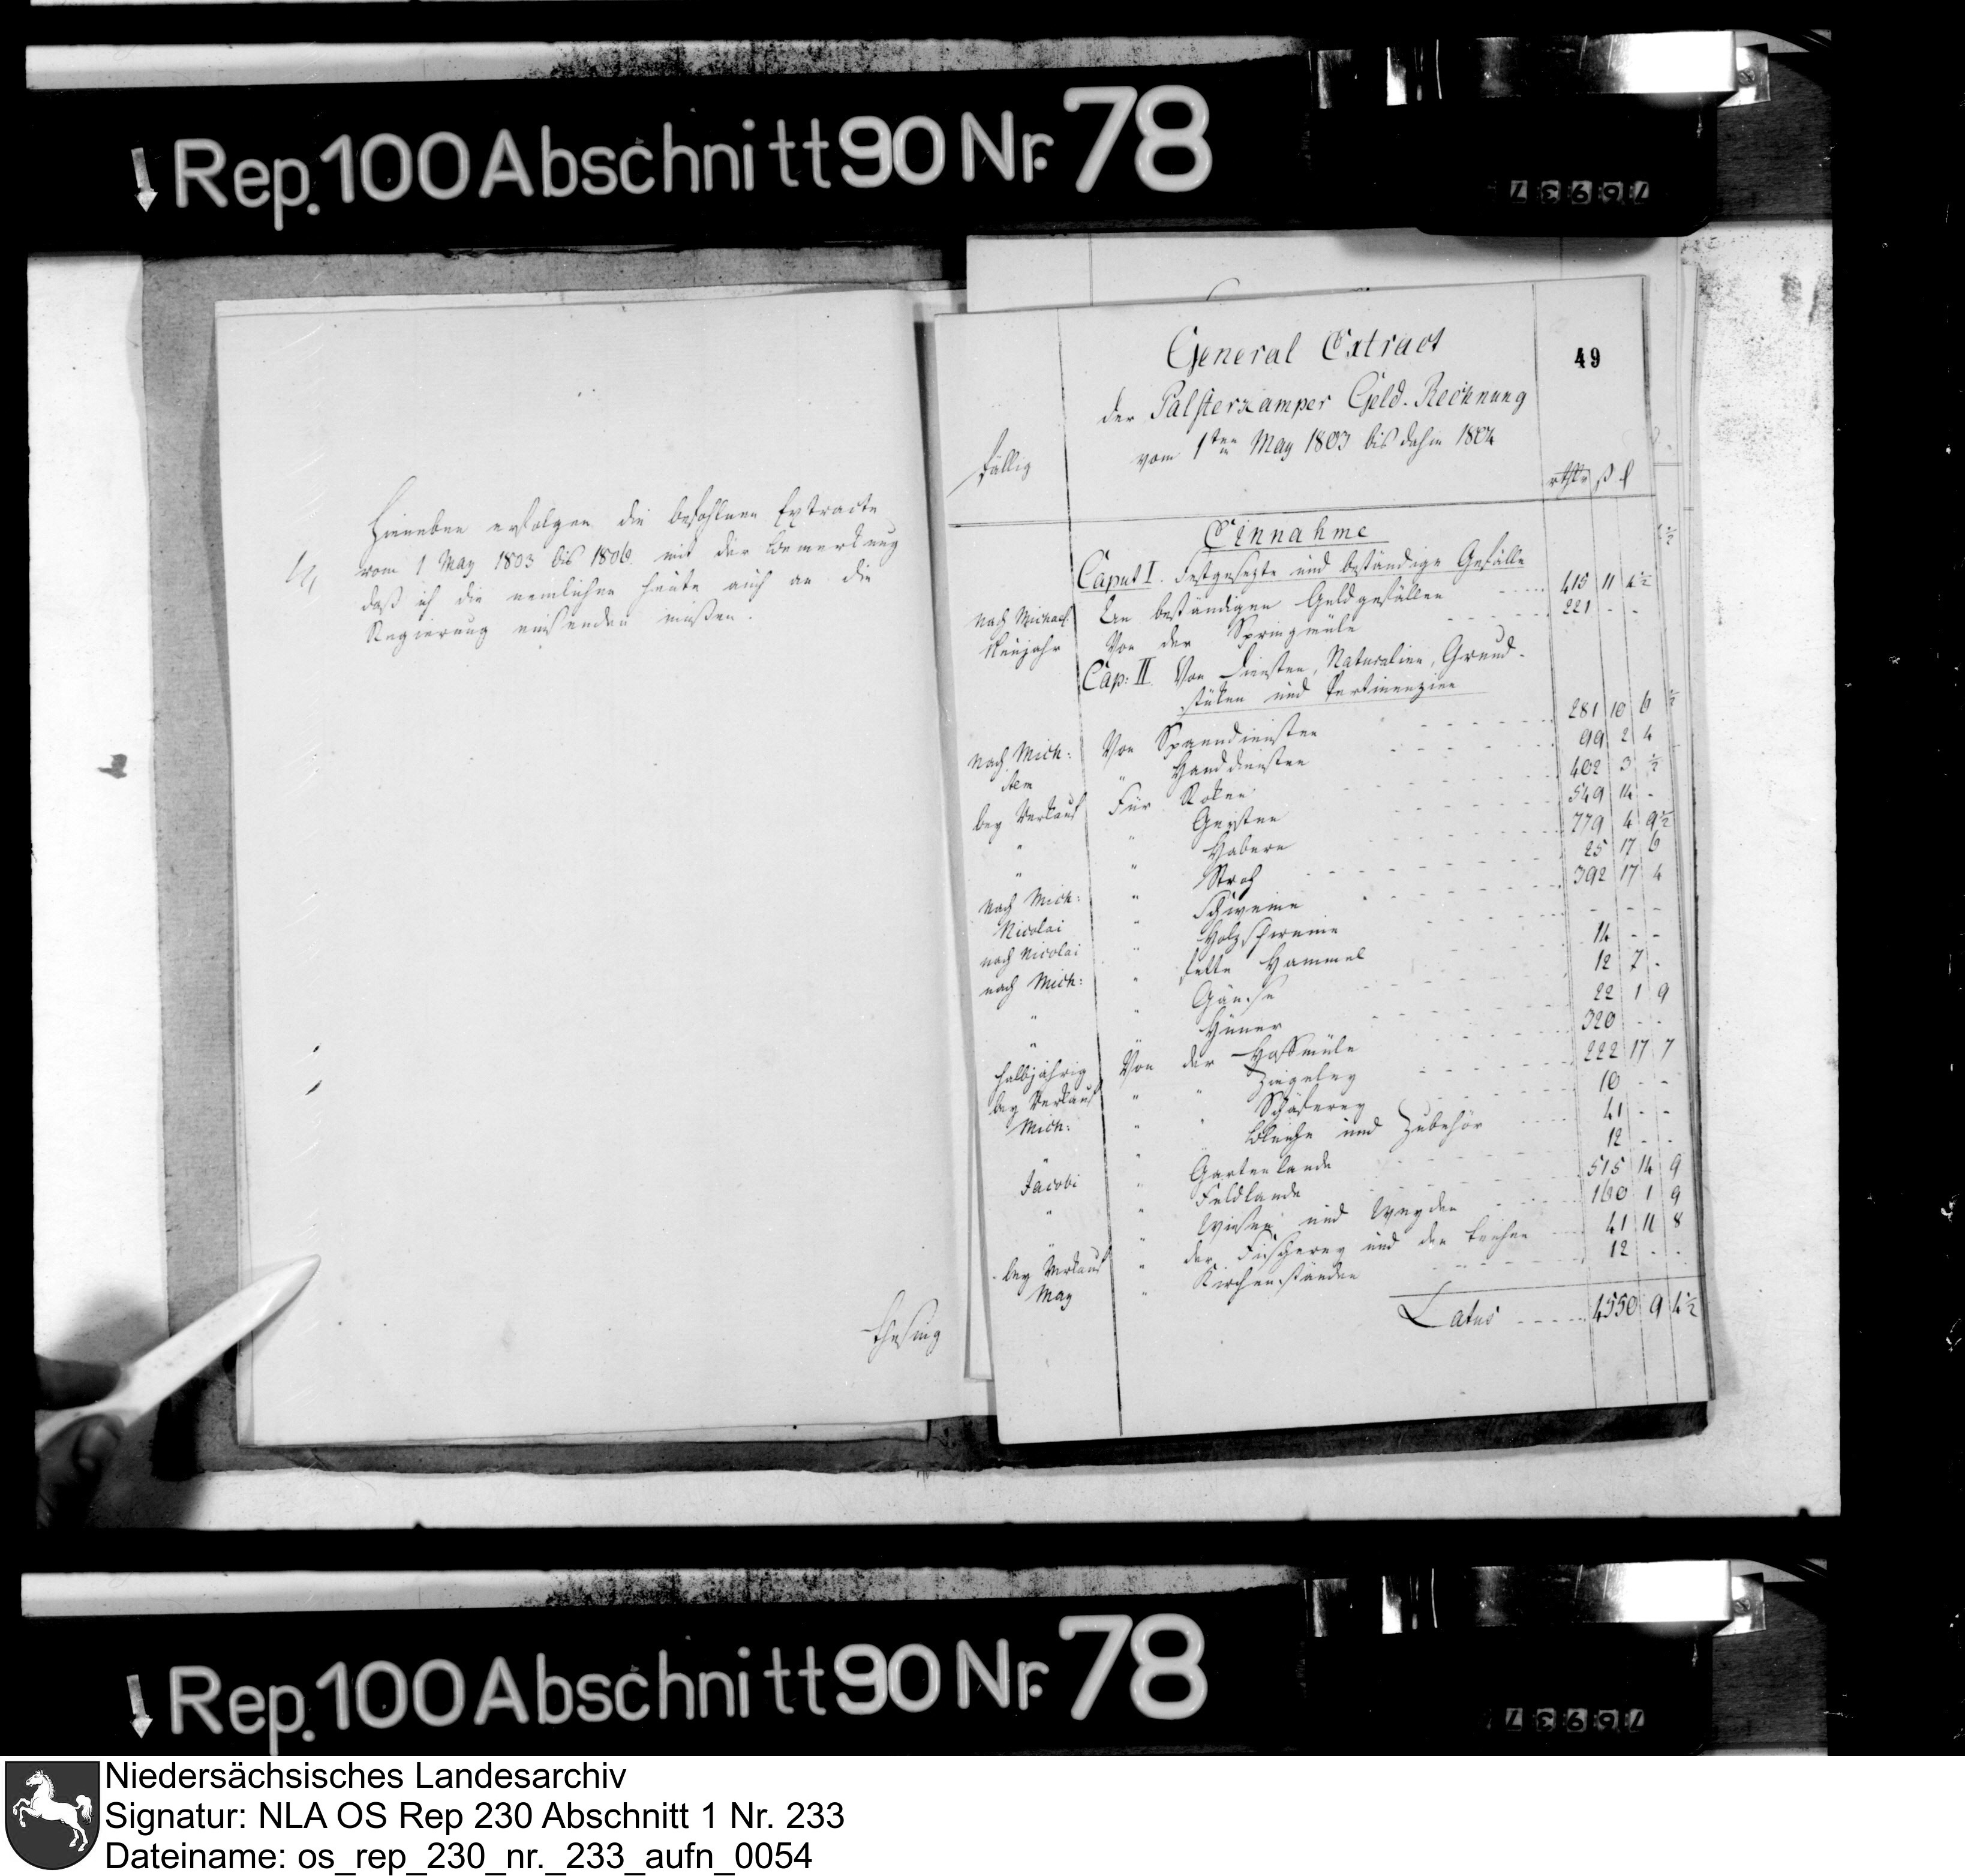 Rep. 100 Abschnitt 90 Nr. 78
76937
Hieneben erfolgen die befohlnen Extracte
vom 1 May 1803 bis 1806. mit der Bemerkung
daß ich die nemlichen heute auch an die
Regierung einsenden müßen.
49
General Extract
der Palsterkamper Geld-Rechnung
vom 1ten May 1803 bis dahin 1804
fällig
rthlr ß d
Einnahme
Caput I. Festgesezte und beständige Gefälle
nach Michael. An beständigen Geldgefällen 415 11 4½
Neujahr Von der Springmüle 221 - -
Cap: II Von Diensten, Naturalien, Grund-
stüken und Pertinenzien
nach Mich: Von Spanndiensten 281 10 6
item " Handdiensten 99 2 4
bey Verkauf Für Roken 402 3 ½
" " Gersten 549 14 -
" " Habern 779 4 9½
nach Mich: " Stroh 25 17 6
Nicolai " Schweine 392 17 4
nach Nicolai " Holzschweine - - -
nach Mich: " fette Hammel 14 - -
" " Gänse 12 7 -
" " Hüner 22 1 9
halbjährig Von der Hoffmüle 320 - -
bey Verkauf " " Ziegeley 222 17 7
Mich: " " Schäferey 10 - -
" " " Bleiche und Zubehör 41 - -
Jacobi " Gartenlande 12 - -
" " Feldlande 515 14 9
" " Wiesen und Weyden 160 1 9
bey Verkauf " der Fischerey und den Teichen 41 11 8
May " Kirchenständen 12 - -
Latus 4550 9 4½
Rep. 100 Abschnitt 90 Nr. 78
76937
Niedersächsisches Landesarchiv
Signatur: NLA OS Rep 230 Abschnitt 1 Nr. 233
Dateiname: os_rep_230_nr._233_aufn_0054